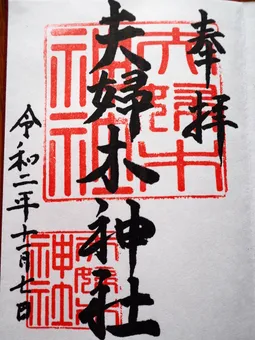 奉拝
夫婦木神社
令和二年十一月七日
夫婦木神社